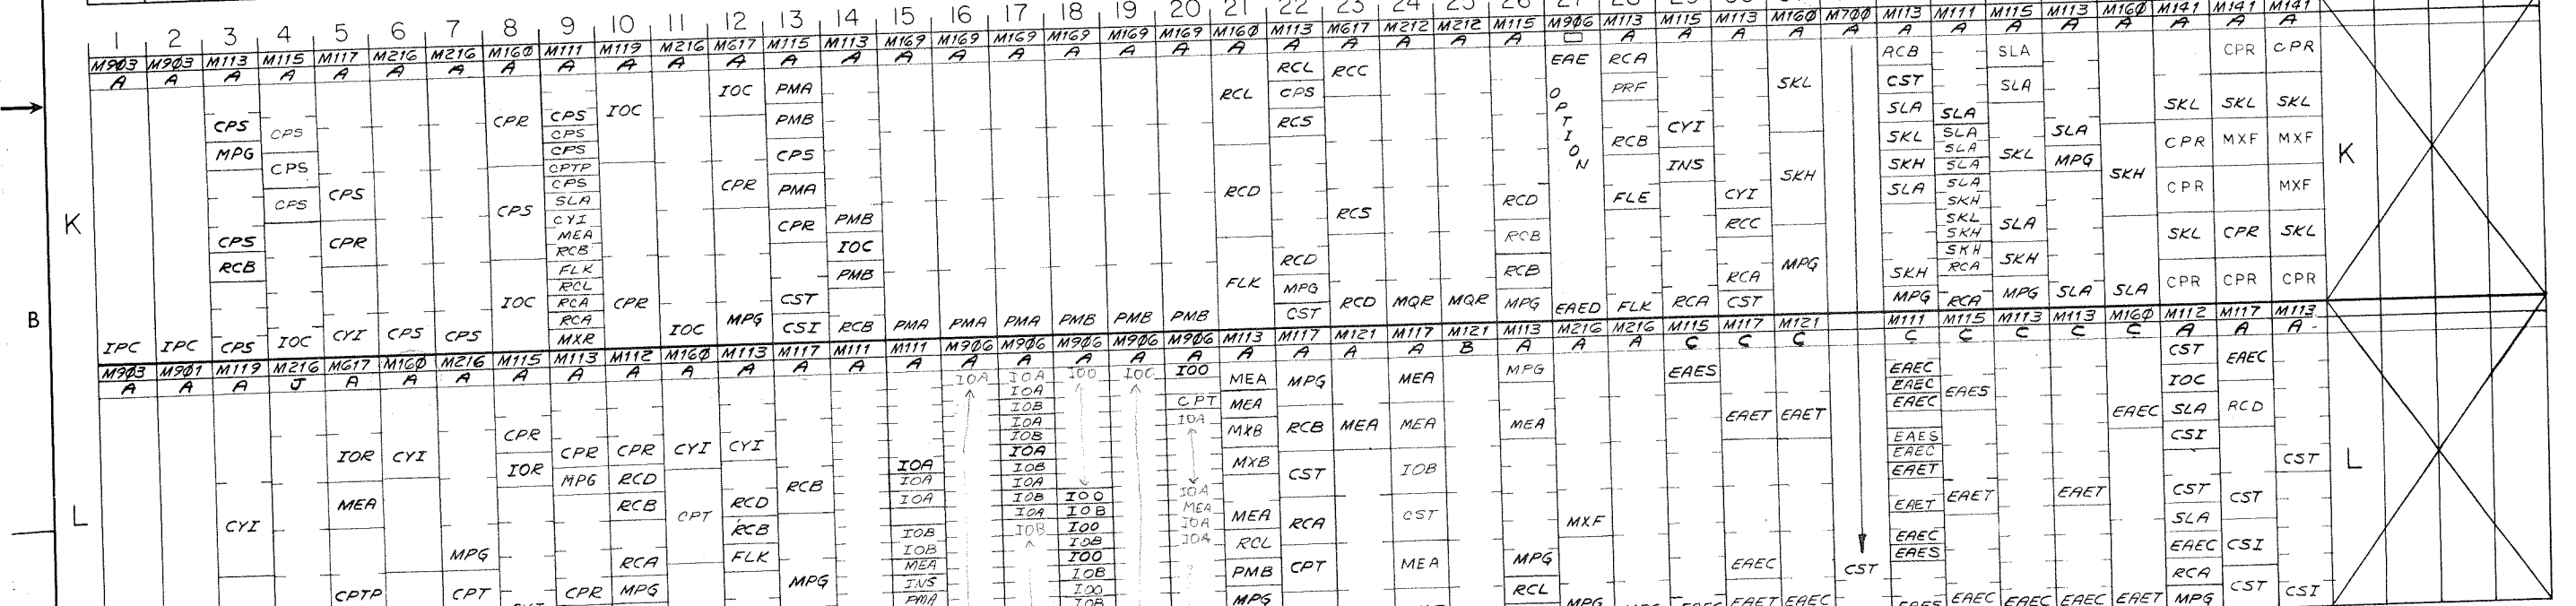 1 2 3 4 5 6 7 8 9 10 11 12 13 14 15 16 17 18 19 20 21 22 23 24 25 26
M903 M903 M113 M115 M117 M216 M216 M160 M111 M119 M216 M617 M115 M113 M169 M169 M169 M169 M169 M169 M160 M113 M617 M212 M212 M115 M906 M113 M115 M113 M160 M700 M113 M111 M115 M113 M160 M141 M141 M141
A A A A A A A A A A A A A A A A A A A A A A A A A A A A A A A A A A A A A A A
K
CPS MPG CPS RCB CPS
CPS CPS CPS IOC
CPS CPR CYI
CPS
CPS
CPR CPS IOC
CPS CPS CPS CPTP CPS SLA CYI MEA RCB FLK RCL RCA RCA MXR
IOC CPR
IOC
IOC CPR MPG
PMA PMB CPS PMA CPR CST CSI
PMB IOC PMB RCB
IPC IPC
PMA PMA PMA PMB PMB PMB
RCL RCD FLK
RCL CPS RCS RCD MPG CST
RCC RCS RCD
MQR MQR
RCD RCB RCB MPG
EAE OPTION EAED
RCA PRF RCB FLE FLK
CYI INS RCA
CYI RCC RCA CST
SKL SKH MPG
RCB CST SLA SKL SKH SLA SKH MPG
SLA SLA SLA SLA SLA SKH SKL SKH SKH RCA RCA
SLA SLA SKL SLA SKH MPG
SLA MPG SLA
SKH SLA
SKL CPR CPR SKL CPR
CPR SKL MXF CPR CPR
CPR SKL MXF MXF SKL CPR
K
B
M903 M901 M119 M216 M617 M160 M216 M115 M113 M112 M160 M113 M117 M111 M111 M906 M906 M906 M906 M906 M113 M117 M121 M117 M121 M113 M216 M216 M115 M117 M121 M111 M115 M113 M113 M160 M112 M117 M113
A A A J A A A A A A A A A A A A A A A A A A A A B A A A C C C C C C C C A A A
L
CYI
IOR MEA CPTP
CYI
MPG CPT
CPR IOR
CPR MPG CPR
CPR RCD RCB RCA MPG
CYI CPT
CYI RCD RCB FLK
RCB MPG
IOA IOA IOA IOB IOB MEA INS PMA
IOA
IOA IOA IOB IOA IOB IOA IOB IOA IOB IOA IOB
IOO IOO IOB IOO IOB IOO IOB IOO IOB
IOO
IOO CPT IOA IOA MEA IOA IOA
MEA MEA MXB MXB MEA RCL PMB MPG
MPG RCB CST RCA CPT
MEA
MEA MEA IOB CST MEA
MPG MEA MPG RCL
MXF MPG
EAES
EAET EAEC EAET
EAET EAEC
CST
EAEC EAEC EAEC EAES EAEC EAET EAET EAEC EAES EAES
EAES EAET EAEC
EAEC
EAET EAEC
EAEC EAET
CST IOC SLA CSI CST SLA EAEC RCA MPG
EAEC RCD CST CSI CST
CST CSI
L